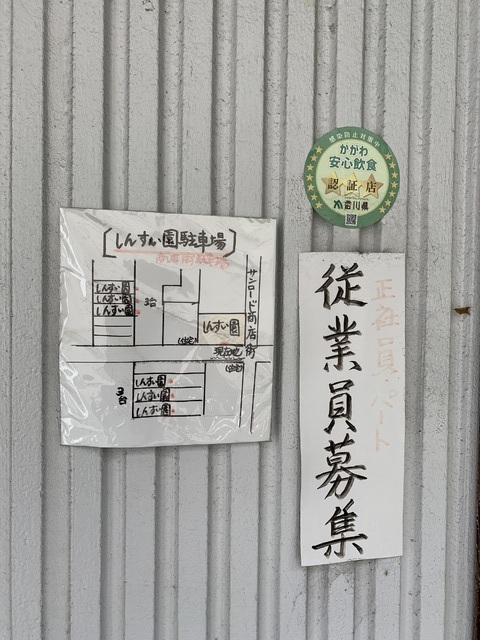 感染防止対策中
かがわ
安心飲食
認証店
香川県
[しんすい園駐車場]
しんすい園
しんすい園
しんすい園
3台
サンロード商店街
しんすい園
現在地
3台
しんすい園
しんすい園
しんすい園
正社員・パート
従業員募集